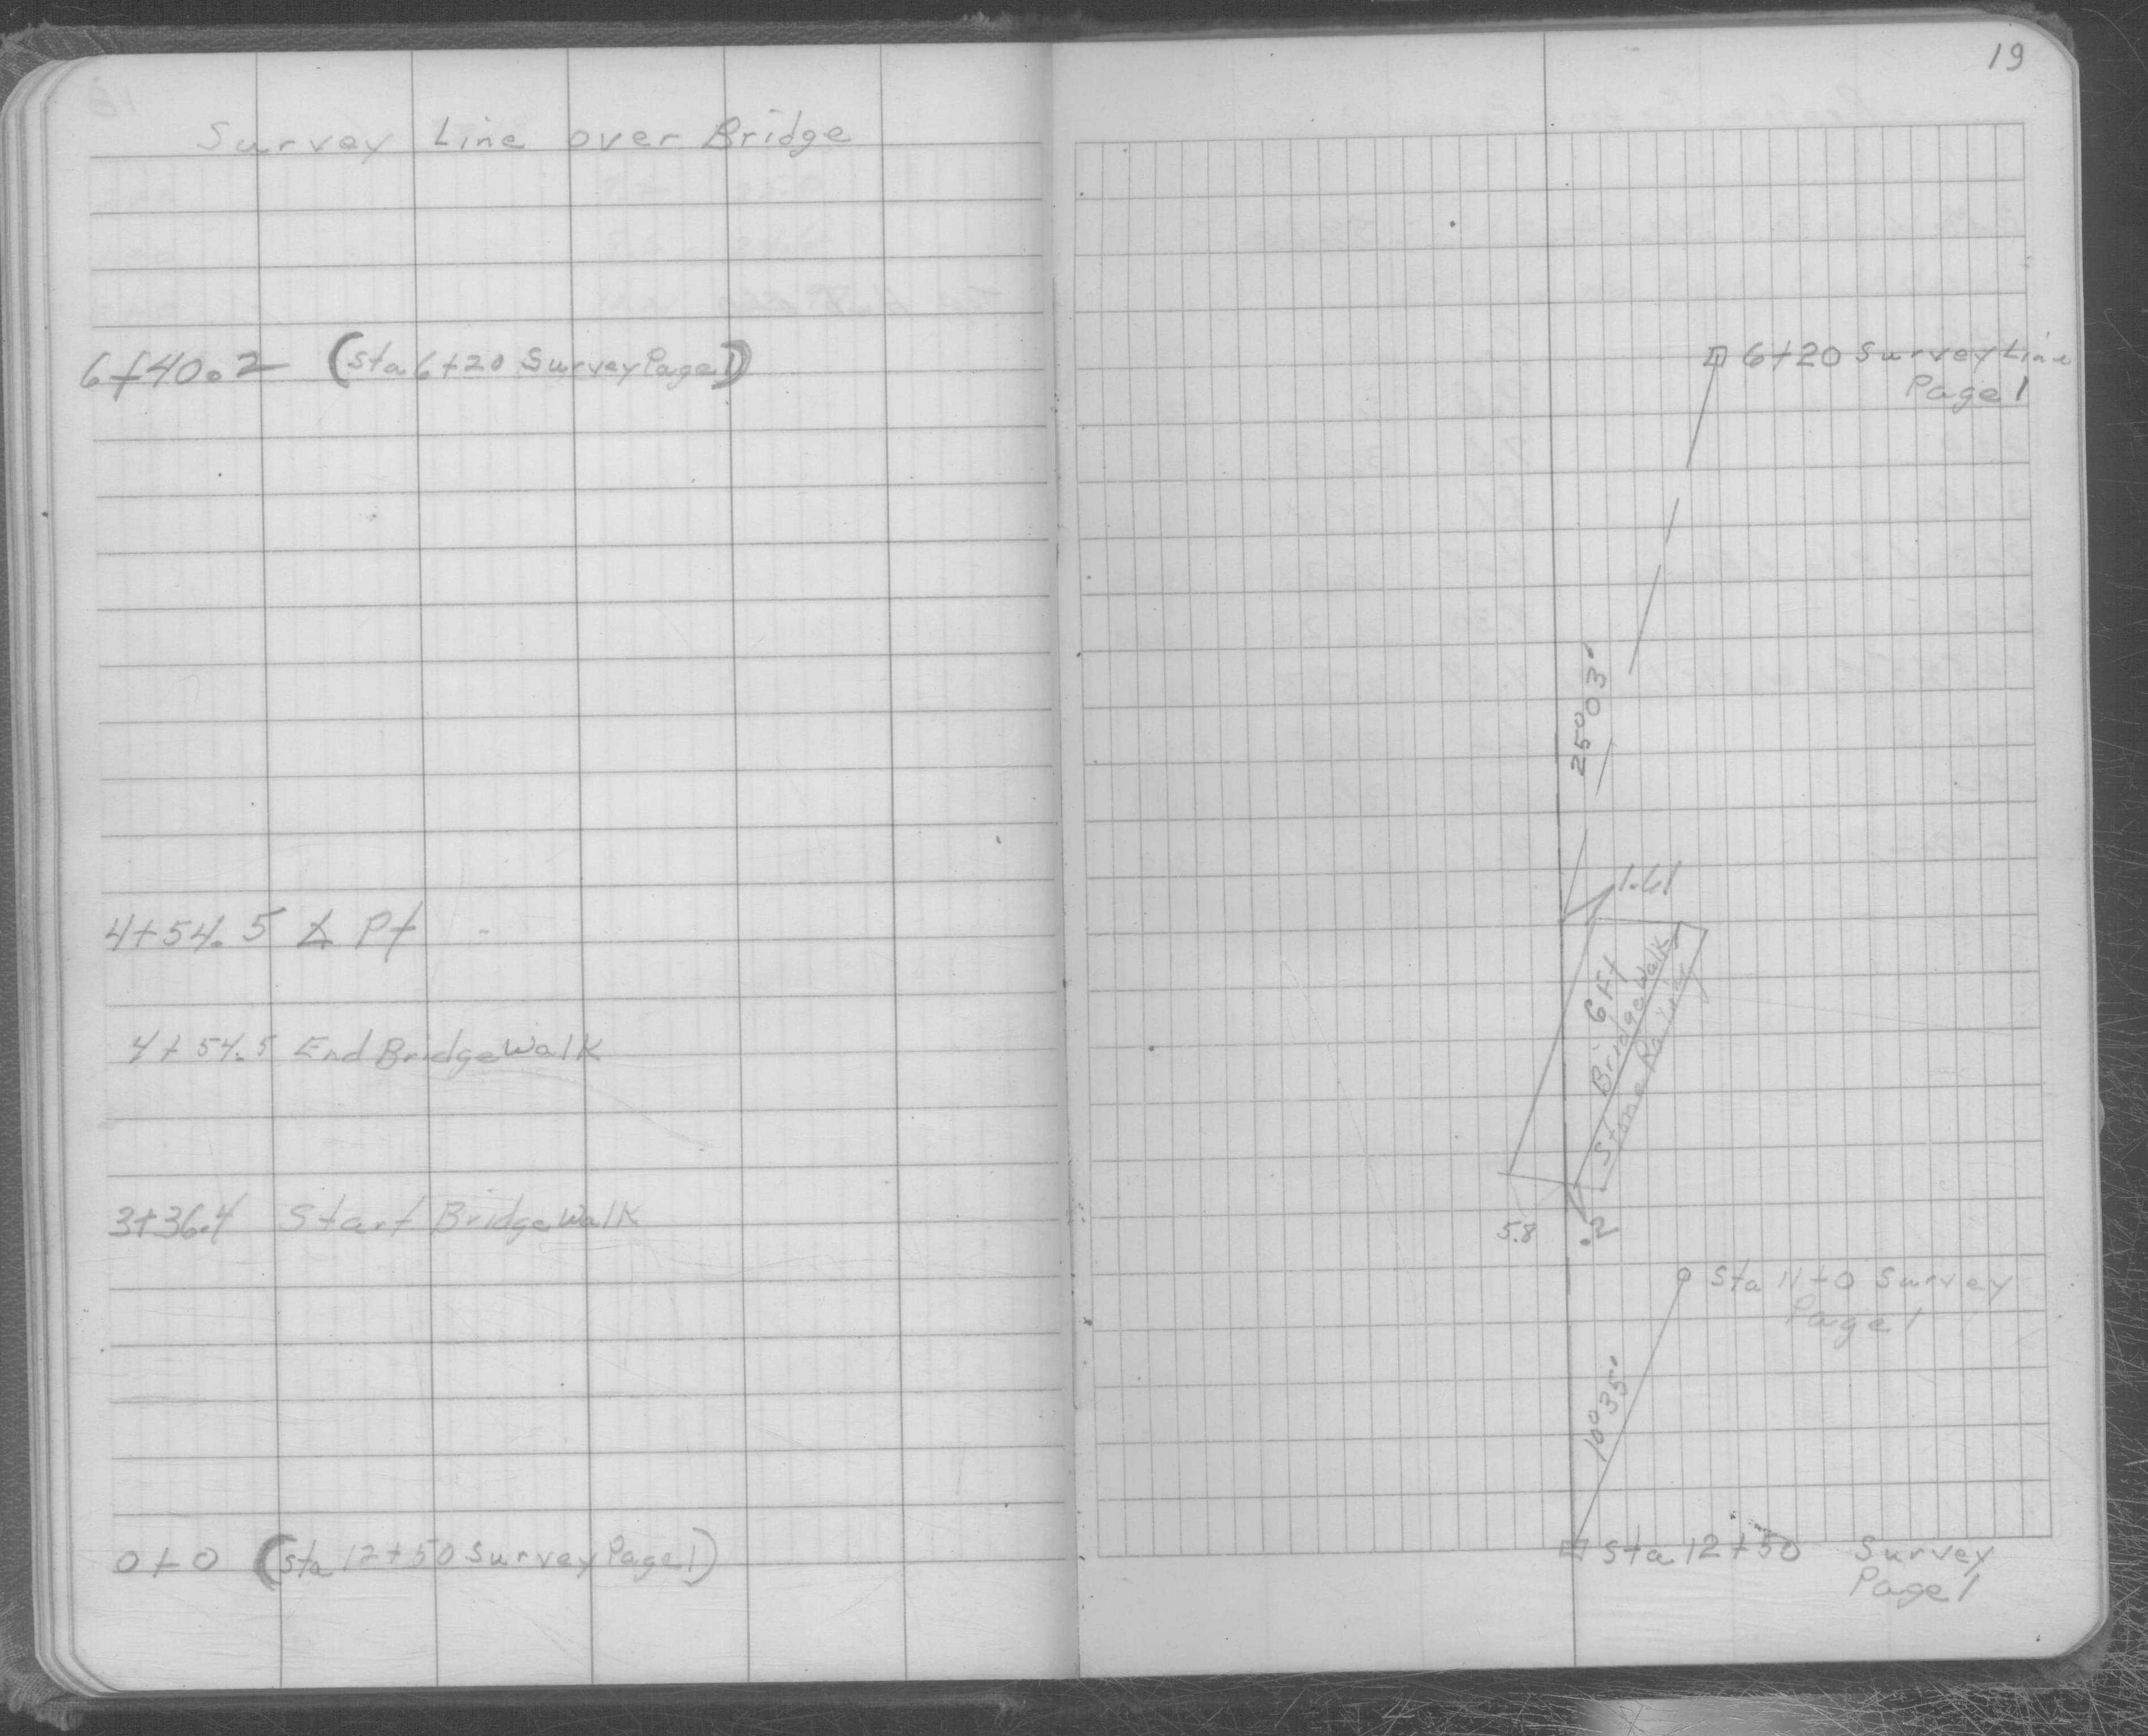 19
Survey Line over Bridge
6+40.2 (Sta 6+20 Survey Page 1)
4+54.5 ∆ Pt
4+54.5 End Bridge Walk
3+36.4 Start Bridge Walk
0+0 (Sta 12+50 Survey Page 1)
6+20 Survey Line
Page 1
25°03'
1.61
6 Ft
Bridge Walk
Stone Railing
5.8
.2
Sta 11+0 Survey
Page 1
10°35'
Sta 12+50 Survey
Page 1